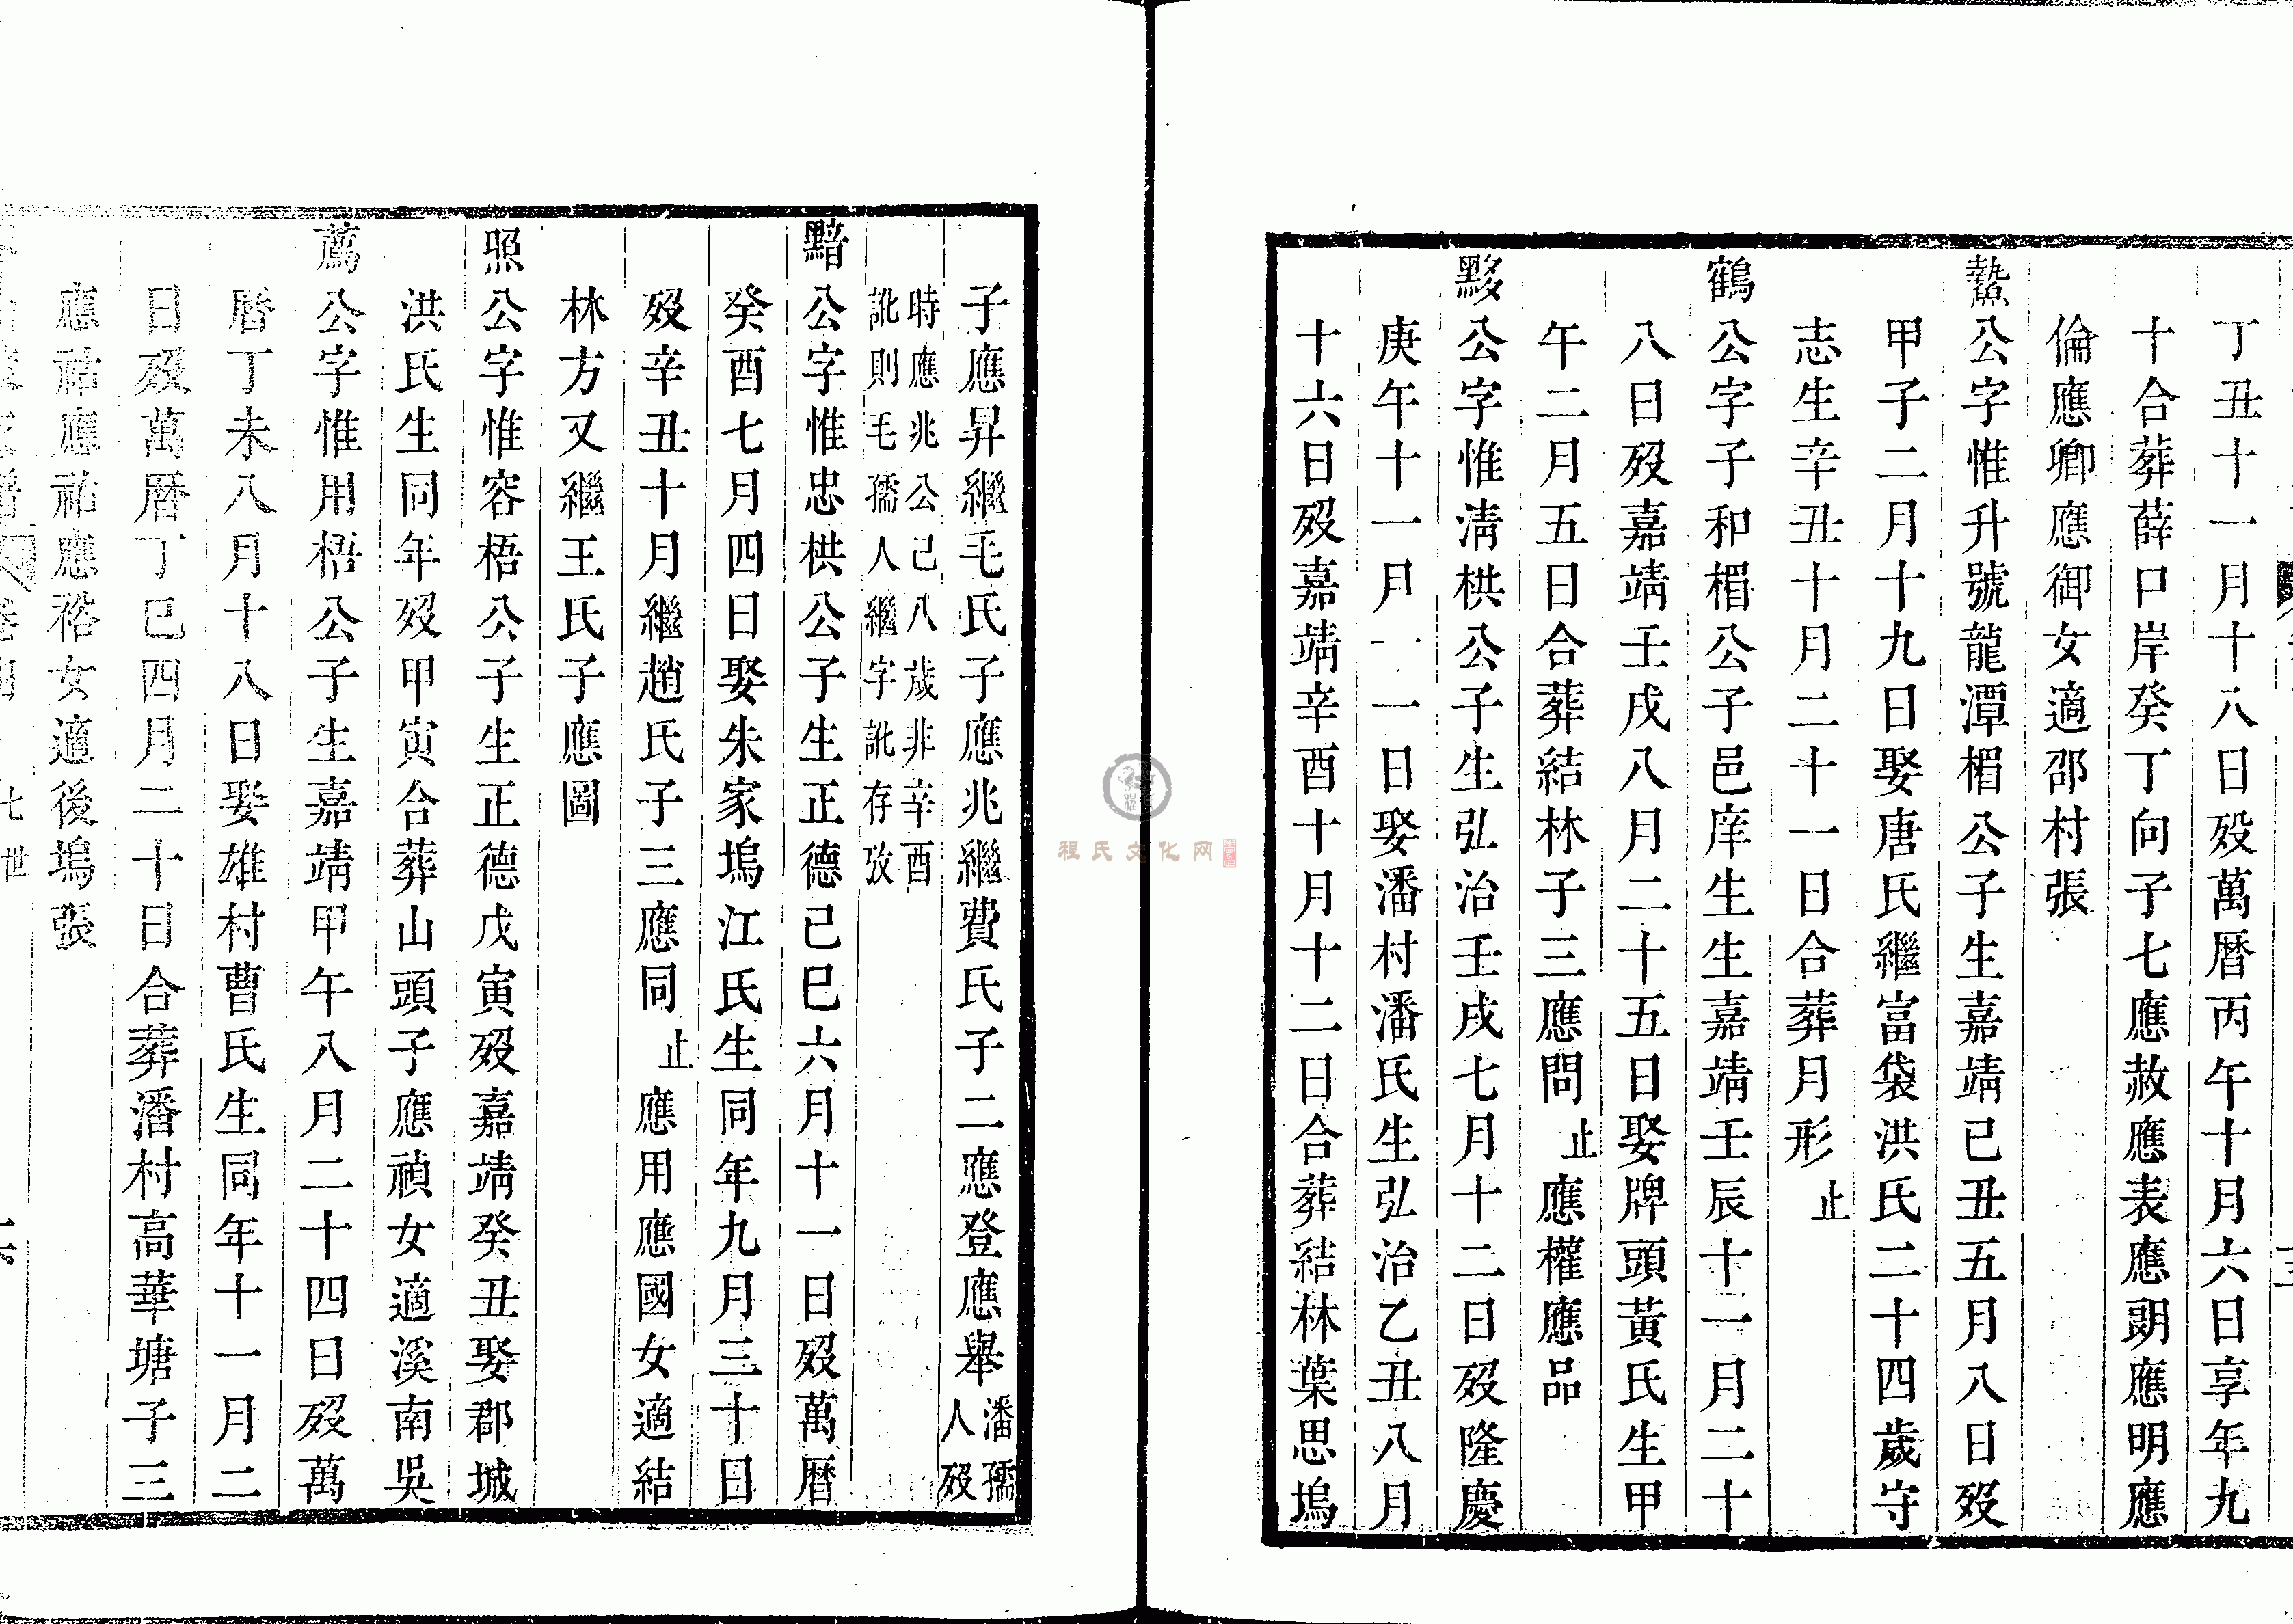 丁丑十一月十八日歿萬曆丙午十月六日享年九
十合葬薛口岸癸丁向子七應赦應表應朗應明應
倫應卿應御女適邵村張
公字惟升號龍潭楣公子生嘉靖己丑五月八日歿
甲子二月十九日娶唐氏繼富袋洪氏二十四歲守
志生辛丑十月二十一日合葬月形止
鶴公字子和楣公子邑庠生生嘉靖壬辰十一月二十
八日歿嘉靖壬戌八月二十五日娶牌頭黃氏生甲
午二月五日合葬結林子三應問止應權應品
黟公字惟淸栱公子生弘治壬戌七月十二日歿隆慶
庚午十一月一日娶潘村潘氏生弘治乙丑八月
十六日歿嘉靖辛酉十月十二日合葬結林葉思塢
子應昇繼毛氏子應兆繼費氏子二應登應舉潘孺
人歿
時應兆公已八歲非辛酉
訛則毛孺人繼字訛存攷
黯公字惟忠栱公子生正德己巳六月十一日歿萬曆
癸酉七月四日娶朱家塢江氏生同年九月三十日
歿辛丑十月繼趙氏子三應同止應用應國女適結
林方又繼王氏子應圖
照公字惟容梧公子生正德戊寅歿嘉靖癸丑娶郡城
洪氏生同年歿甲寅合葬山頭子應禎女適溪南吳
薦公字惟用梧公子生嘉靖甲午八月二十四日歿萬
曆丁未八月十八日娶雄村曹氏生同年十一月二
日歿萬曆丁巳四月二十日合葬潘村高華塘子三
應祜應祐應裕女適後塢張
七世
程氏文化网